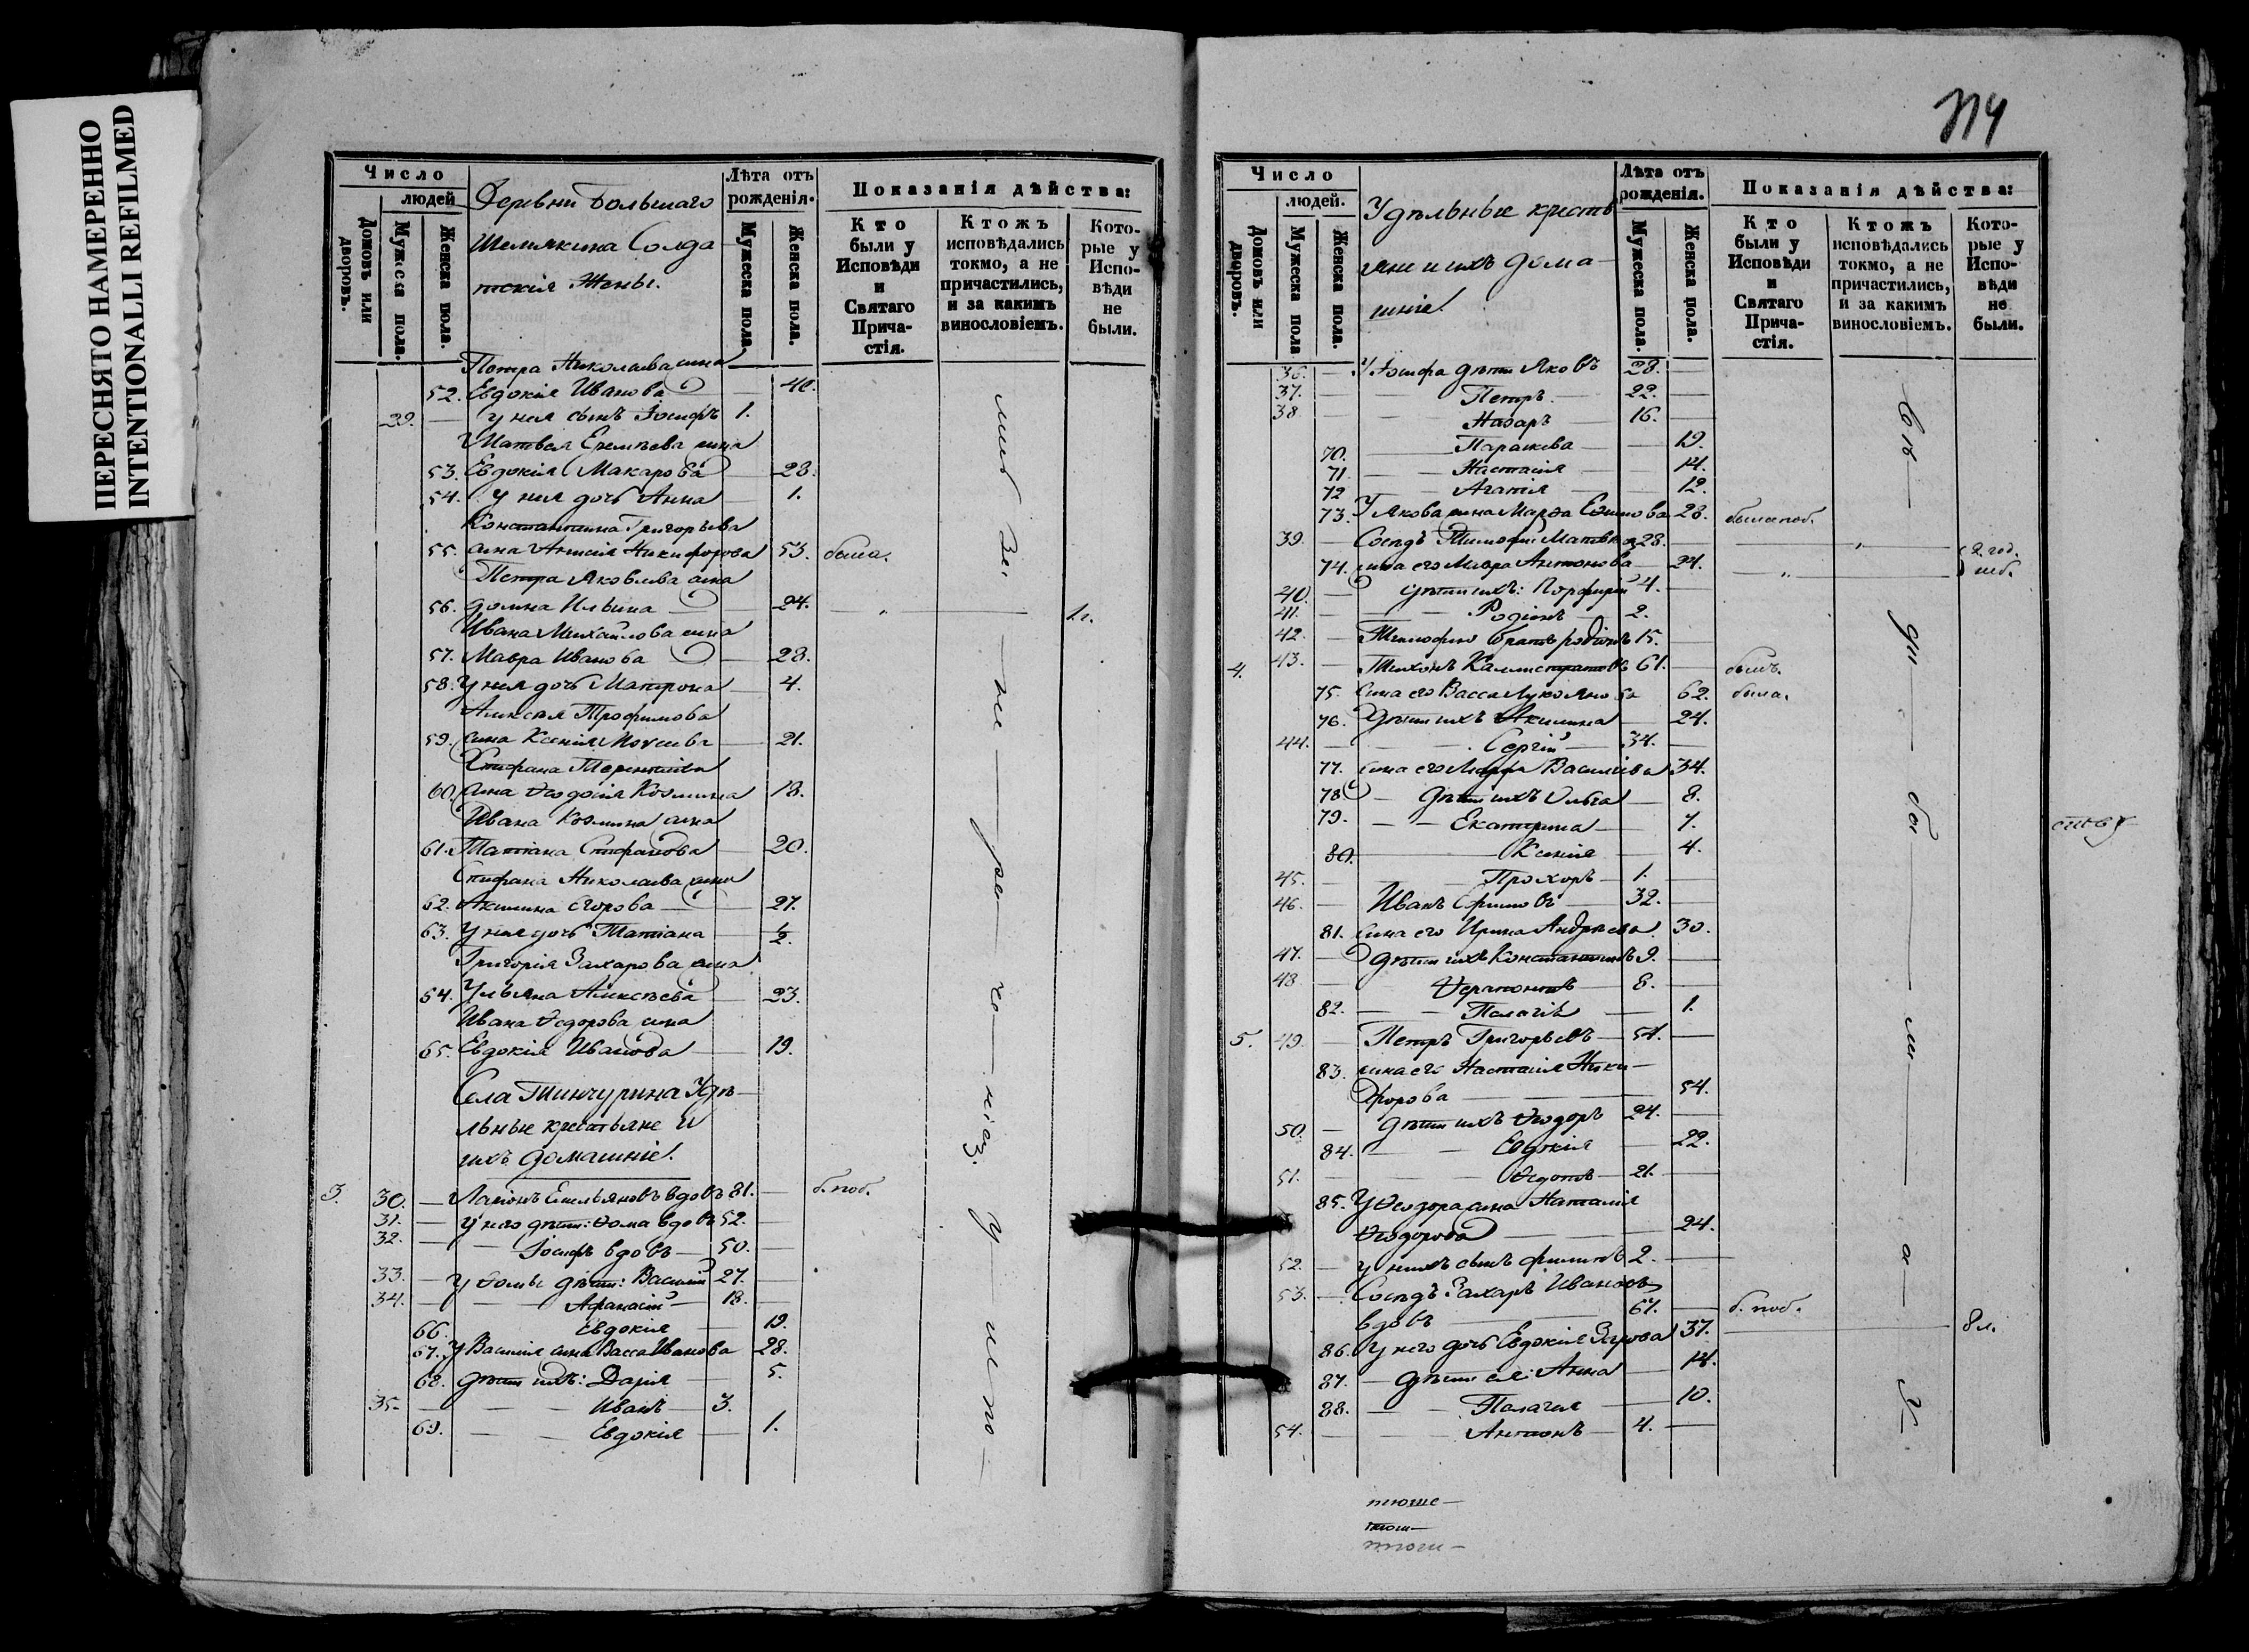 ПЕРЕСНЯТО НАМЕРЕННО
INTENTIONALLI REFILMED
Число
людей
Домовъ или дворовъ.
Мужеска пола.
Женска пола.
Деревни Большаго
Шемякина Солда
тскія Жены.
Лѣта отъ рожденія.
Мужеска пола.
Женска пола.
Показанія дѣйства:
Кто были у Исповѣди и Святаго Причастія.
Ктожъ исповѣдались токмо, а не причастились, и за какимъ винословіемъ.
Которые у Исповѣди не были.
Петра Николаева жена
52. Евдокія Иванова 40.
29. у нея сынъ Іосифъ 1.
Матвея Еремѣева жена
53. Евдокія Макарова 28.
54. у нея дочь Анна 1.
Константина Григорьева
55. жена Анисія Никифорова 53. была.
Петра Яковлева жена
56. Домна Ильина 24. 1 г.
Ивана Михайлова жена
57. Мавра Иванова 28.
58. У нея дочь Матрона 4.
Алексѣя Трофимова
59. жена Ксенія Моѵсеева 21.
Стефана Терентіева
60. жена Ѳеодосія Козмина 18.
Ивана Козмина жена
61. Татіана Стефанова 20.
Стефана Николаева жена
62. Акилина Егорова 27.
63. У нея дочь Татіана 1/2.
Григорія Захарова жена
64. Ульяна Алексѣева 23.
Ивана Ѳедорова жена
65. Евдокія Иванова 19.
Села Тинчурина Удѣ-
льные крестьяне и
ихъ домашніе.
3. 30. Ларіонъ Емельяновъ вдовъ 81. б. поб.
31. У него дѣти: Ѳома вдовъ 52.
32. Іосифъ вдовъ 50.
33. У Ѳомы дѣти: Василій 27.
34. Афанасій 18.
66. Евдокія 19.
67. У Василія жена Васса Иванова 28.
68. дѣти ихъ: Дарія 5.
35. Иванъ 3.
69. Евдокія 1.
Число
людей.
Домовъ или дворовъ.
Мужеска пола
Женска пола.
Удѣльные кресть
яне и ихъ дома-
шніе.
Лѣта отъ рожденія.
Мужеска пола.
Женска пола.
Показанія дѣйства:
Кто были у Исповѣди и Святаго Причастія.
Ктожъ исповѣдались токмо, а не причастились, и за какимъ винословіемъ.
Которые у Исповѣди не были.
36. У Іосифа дѣти Яковъ 28.
37. Петръ 22.
38. Назаръ 16.
70. Параскева 19.
71. Настасія 14.
72. Агапія 12.
73. У Якова жена Марѳа Ефимова 28. была поб.
39. Сосѣдъ Тимофей Матвѣевъ 28. 2 год.
74. жена его Мавра Антонова 24.
40. дѣти ихъ: Порфирій 4.
41. Родіонъ 2.
42. Тимофею братъ Родіонъ 15.
4. 43. Тихонъ Каллистратовъ 61. былъ.
75. жена его Васса Лукоянова 62. была.
76. Дѣти ихъ Акилина 24.
44. Сергій 34.
77. жена его Марфа Василіева 34.
78. дѣти ихъ Ольга 8.
79. Екатерина 7.
80. Ксенія 4.
45. Прохоръ 1.
46. Иванъ Ефимовъ 32.
81. жена его Ирина Андреева 30.
47. Дѣти ихъ Константинъ 9.
48. Ѳерапонтъ 8.
82. Пелагія 1.
5. 49. Петръ Григорьевъ 54.
83. жена его Настасія Ники-
форова 54.
50. Дѣти ихъ Ѳеодоръ 24.
84. Евдокія 22.
51. Ѳедотъ 21.
85. У Ѳеодора жена Наталія
Ѳеодорова 24.
52. у нихъ сынъ Филипъ 2.
53. Сосѣдъ Захаръ Ивановъ
вдовъ 67. б. поб.
86. У него дочь Евдокія Захарова 37. 8 л.
87. дѣти ея: Анна 14.
88. Пелагея 10.
54. Антонъ 4.